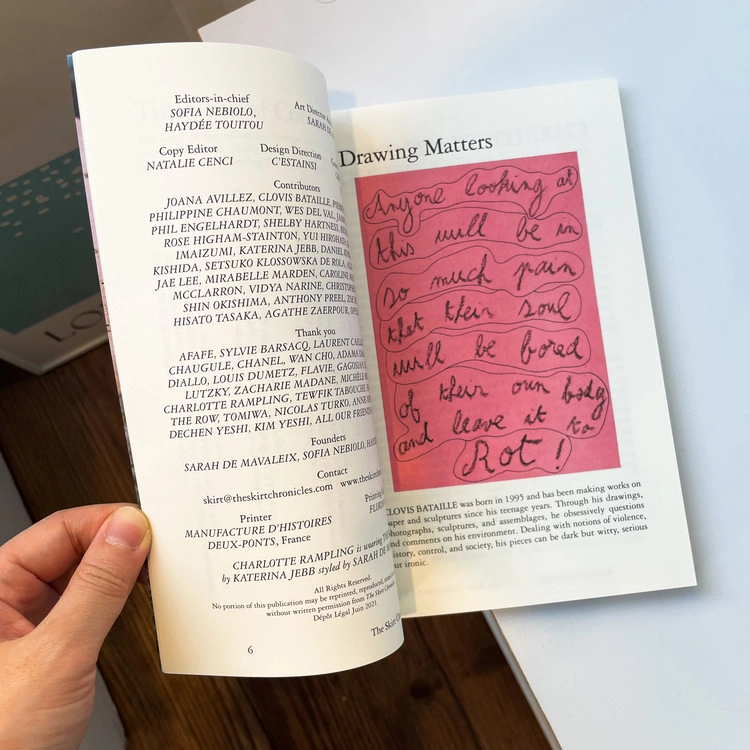 Editors-in-chief
SOFIA NEBIOLO,
HAYDÉE TOUITOU
Art Director
SARAH
Copy Editor
NATALIE CENCI
Design Direction
C'ESTAINSI
Contributors
JOANA AVILLEZ, CLOVIS BATAILLE,
PHILIPPINE CHAUMONT, WES DEL VAL,
PHIL ENGELHARDT, SHELBY HARTNESS,
ROSE HIGHAM-STAINTON, YUI
IMAIZUMI, KATERINA JEBB, DANIEL
KISHIDA, SETSUKO KLOSSOWSKA DE ROLA,
JAE LEE, MIRABELLE MARDEN, CAROLINE
MCCLARRON, VIDYA NARINE,
SHIN OKISHIMA, ANTHONY PREEL,
HISATO TASAKA, AGATHE ZAERPOUR,
Thank you
AFAFE, SYLVIE BARSACQ, LAURENT
CHAUGULE, CHANEL, WAN CHO, ADAMA
DIALLO, LOUIS DUMETZ, FLAVIE,
LUTZKY, ZACHARIE MADANE,
CHARLOTTE RAMPLING, TEWFIK
THE ROW, TOMIWA, NICOLAS TURKO,
DECHEN YESHI, KIM YESHI, ALL OUR
Founders
SARAH DE MAVALEIX, SOFIA NEBIOLO,
Contact
skirt@theskirtchronicles.com
Printer
MANUFACTURE D'HISTOIRES
DEUX-PONTS, France
CHARLOTTE RAMPLING is wearing
by KATERINA JEBB styled by SARAH DE
All Rights Reserved.
No portion of this publication may be reprinted, reproduced,
without written permission from The Skirt
Dépôt Légal Juin 2021
The Skirt
6
Drawing Matters
Anyone looking at
this will be in
so much pain
that their soul
will be bored
of their own body
and leave it to
Rot!
CLOVIS BATAILLE was born in 1995 and has been making works on
paper and sculptures since his teenage years. Through his drawings,
photographs, sculptures, and assemblages, he obsessively questions
and comments on his environment. Dealing with notions of violence,
history, control, and society, his pieces can be dark but witty, serious
but ironic.